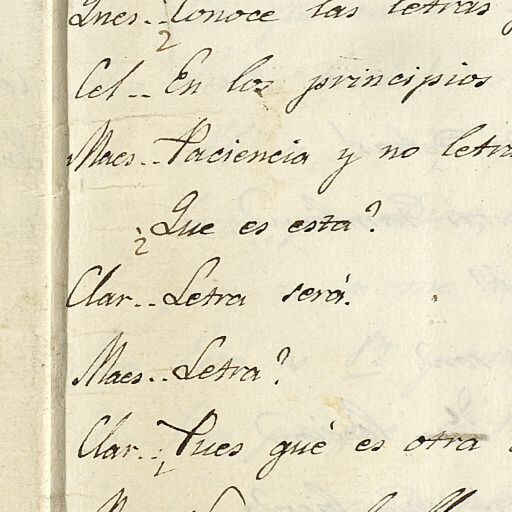 Ynes.. ¿Conoce las letras
Cel.. En los principios
Maes.. Paciencia y no letra
¿Que es esta?
Clar.. Letra será.
Maes.. Letra?
Clar.. ¿Pues qué es otra